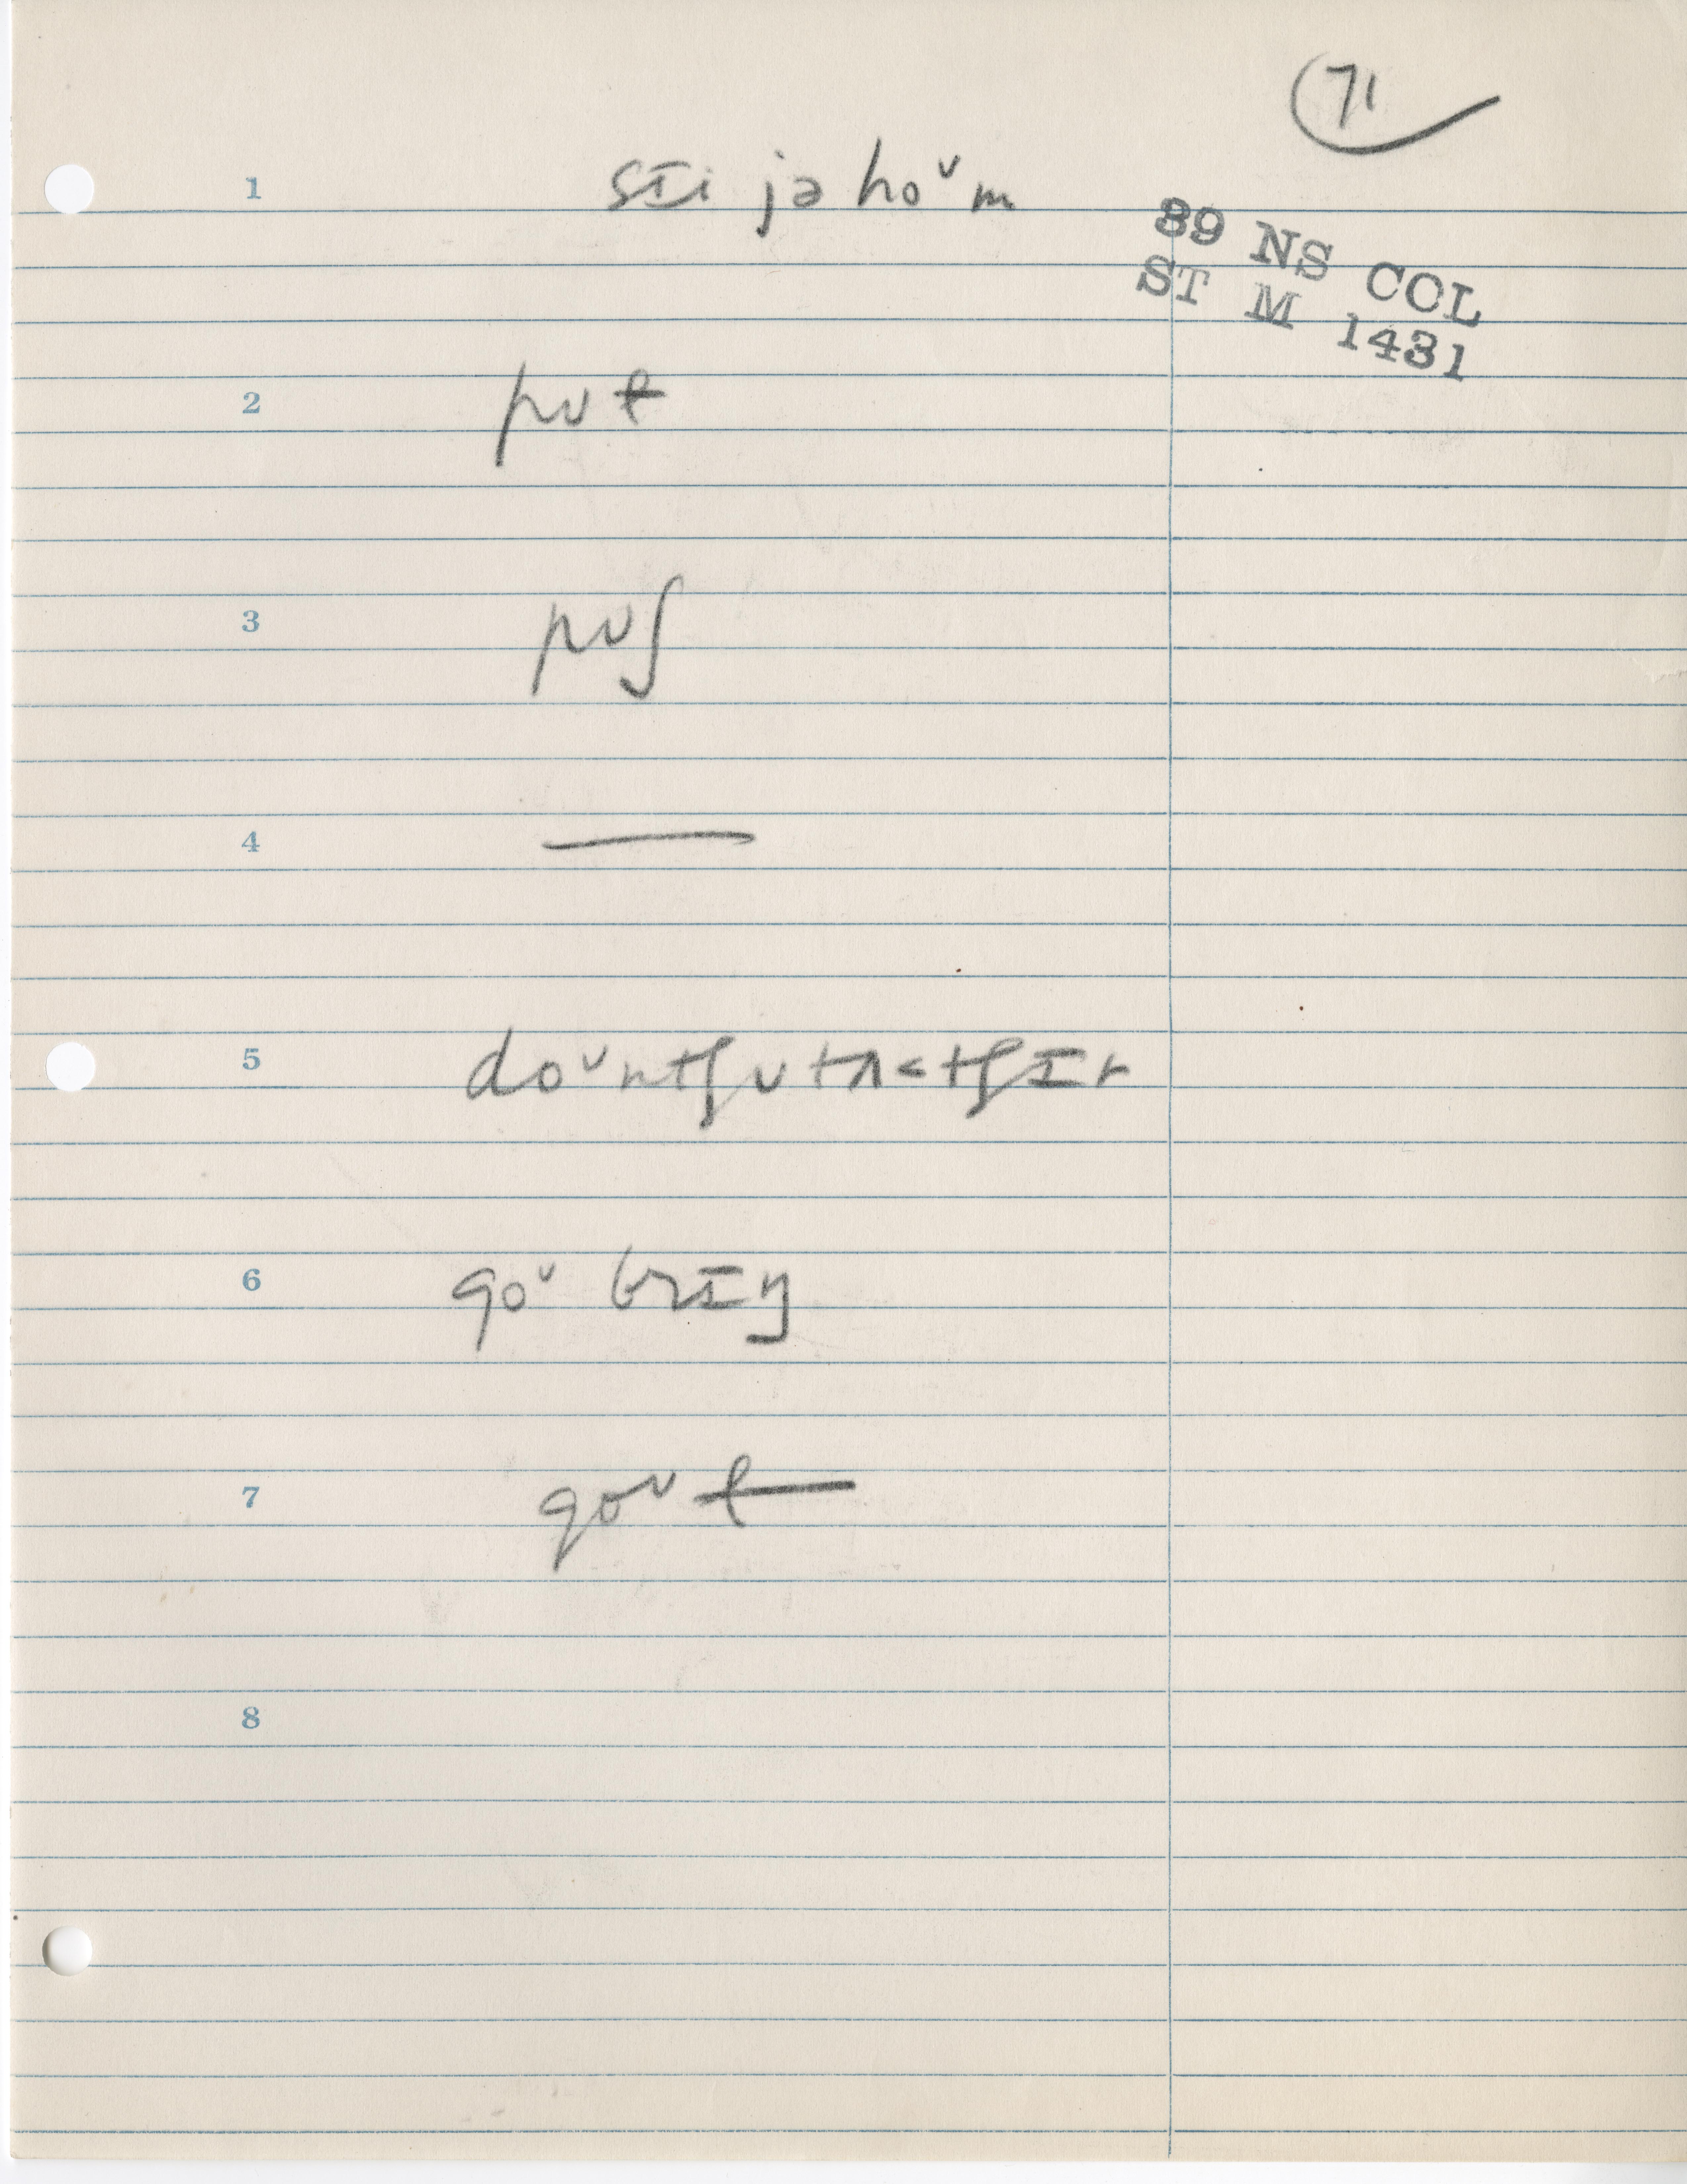 71
1 sɪi jə hoᵛm
89 NS COL
ST M 1431
2 pʊt
3 pʊʃ
4 —
5 doᵛntʃʊtʌ<tʃɪt
6 goᵛ brɪŋ
7 goᵛ t—
8